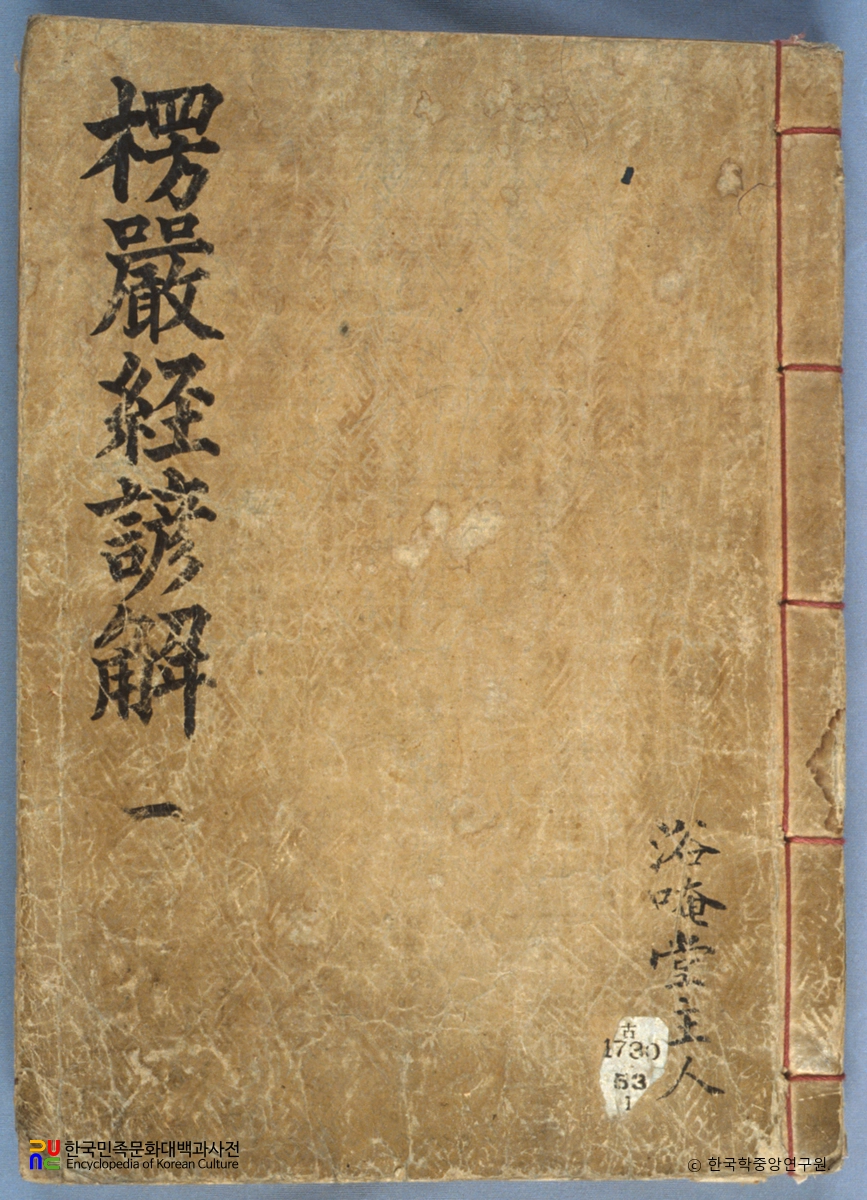 楞嚴経諺解 一
浴唵堂主人
古
1730
53
1
한국민족문화대백과사전
Encyclopedia of Korean Culture
© 한국학중앙연구원